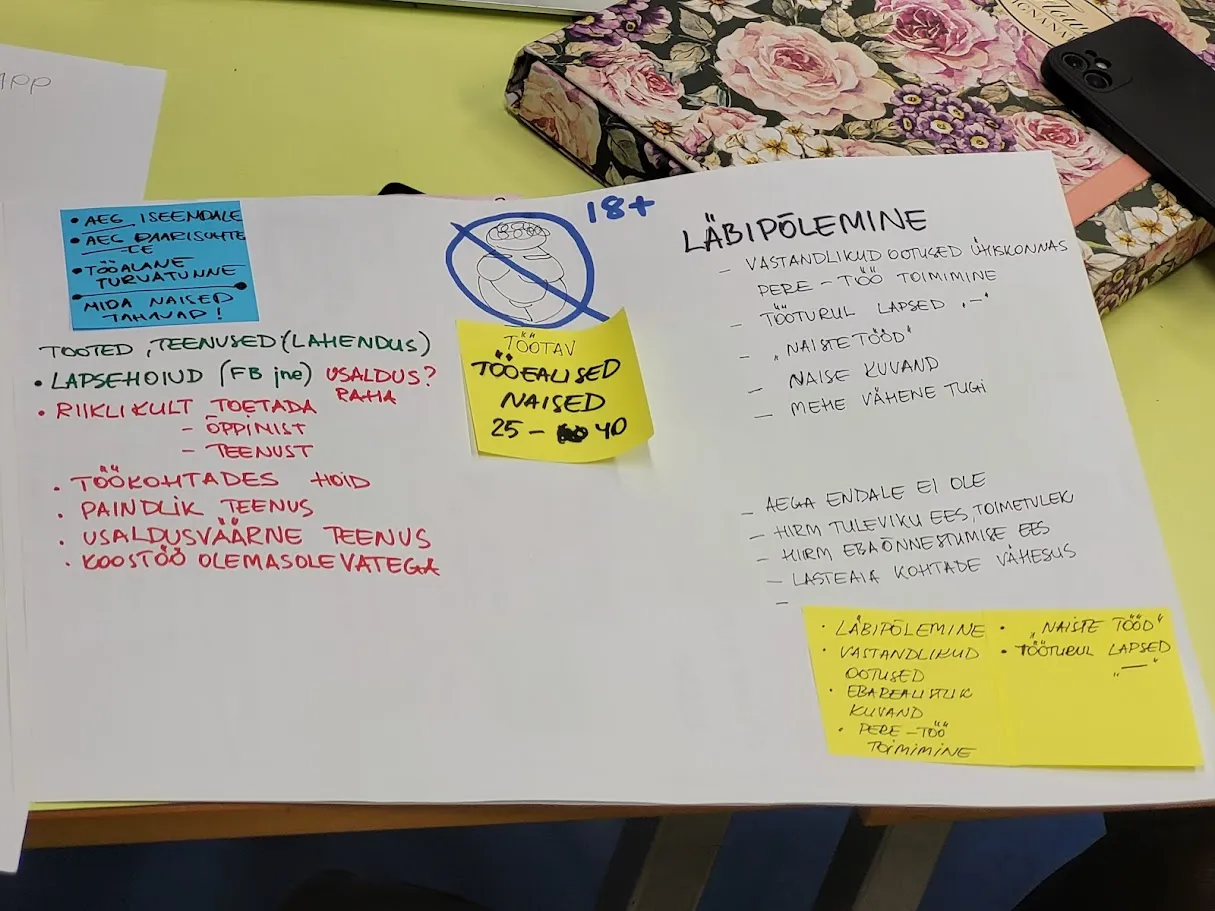 APP
• AEG ISEENDALE
• AEG PAARISUHTE
TE
• TÖÖALANE
TURVATUNNE
MIDA NAISED
TAHAVAD!
TOOTED, TEENUSED (LAHENDUS)
• LAPSEHOIUD (FB jne) USALDUS?
RAHA
• RIIKLIKULT TOETADA
- ÕPPINIST
- TEENUST
• TÖÖKOHTADES HOID
• PAINDLIK TEENUS
• USALDUSVÄÄRNE TEENUS
• KOOSTÖÖ OLEMASOLEVATEGA
18+
TÖÖTAV
TÖÖEALISED
NAISED
25 - 40
LÄBIPÕLEMINE
- VASTANDLIKUD OOTUSED ÜHISKONNAS
PERE - TÖÖ TOIMIMINE
- TÖÖTURUL LAPSED „-"
- „NAISTE TÖÖD"
- NAISE KUVAND
- MEHE VÄHENE TUGI
- AEGA ENDALE EI OLE
- HIRM TULEVIKU EES, TOIMETULEK
- HIRM EBAÕNNESTUMISE EES
- LASTEAIA KOHTADE VÄHESUS
-
• LÄBIPÕLEMINE
• VASTANDLIKUD
OOTUSED
• EBAREALISTLIK
KUVAND
• PERE - TÖÖ
TOIMIMINE
• „NAISTE TÖÖD"
• TÖÖTURUL LAPSED
„—"